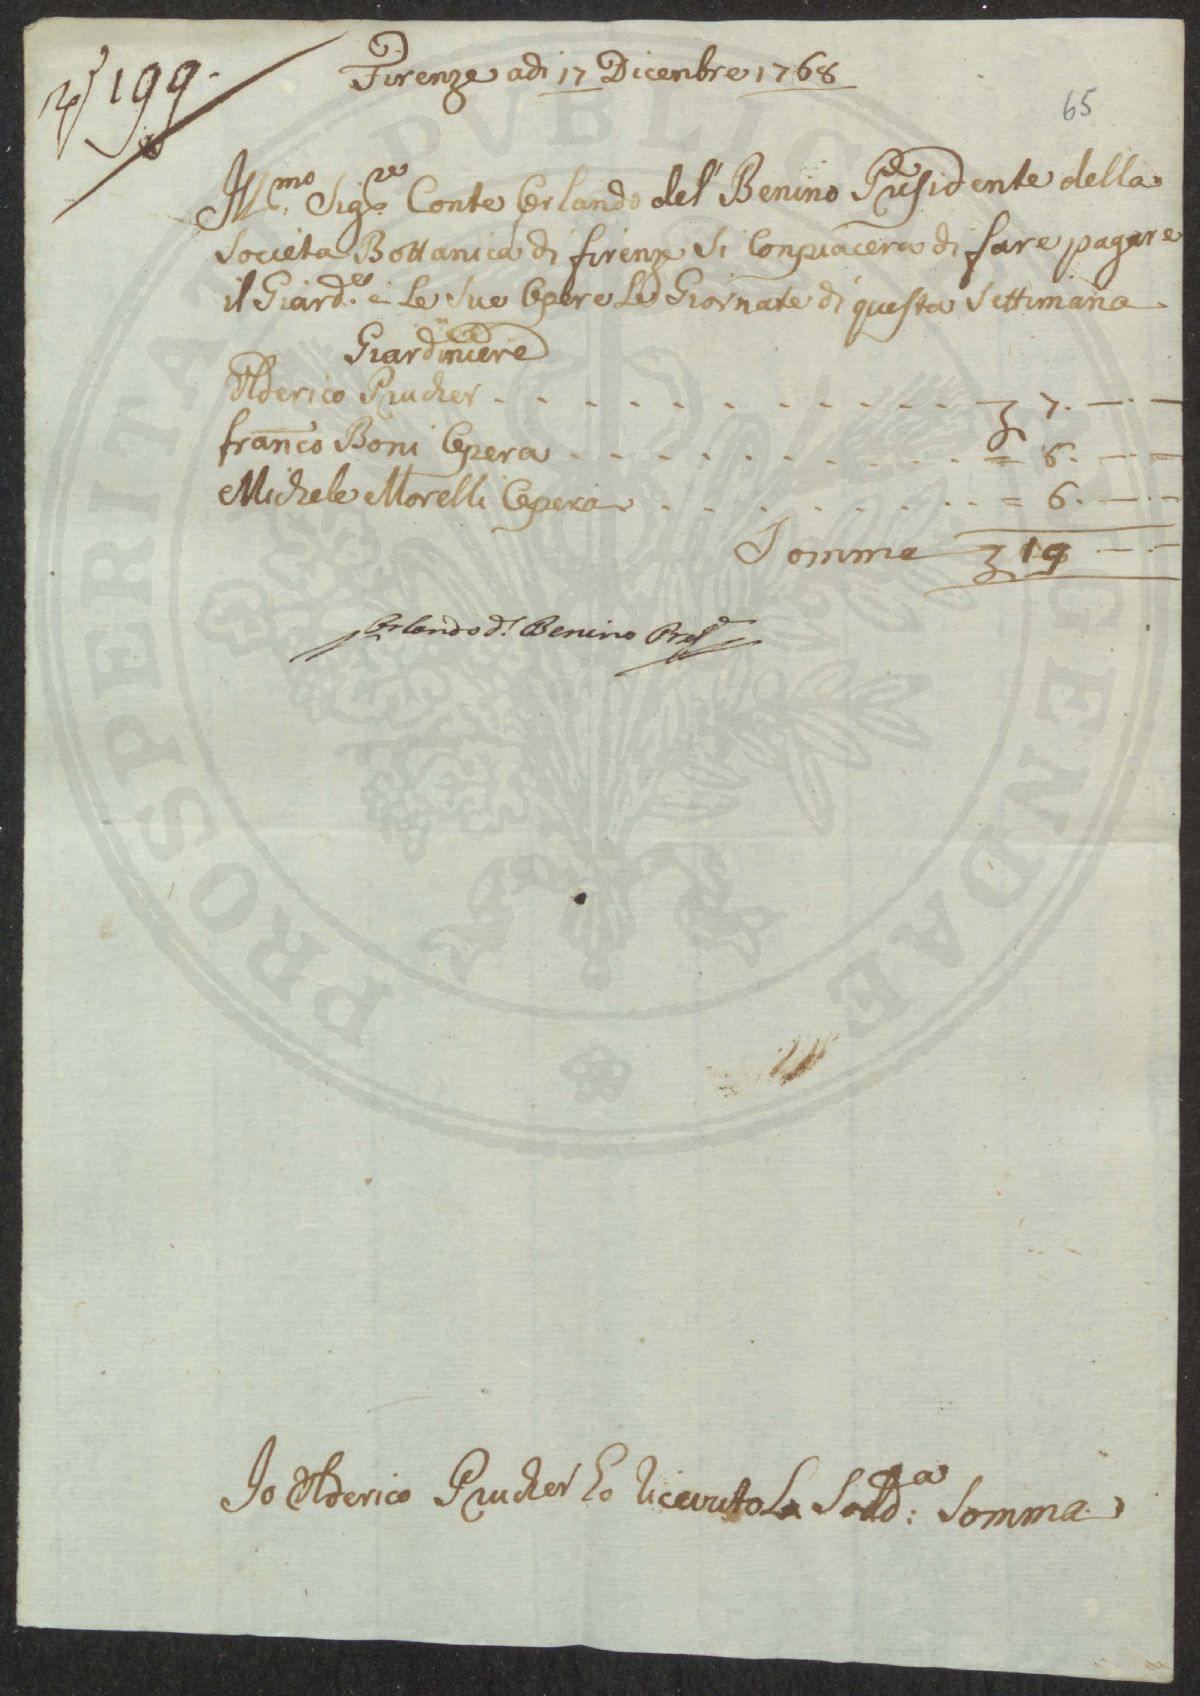 N 199.
Firenze adi 17 Dicenbre 1768
65
Ill.mo Sig.re Conte Orlando del' Benino Presidente della
Societa Bottanica di firenze Si Conpiacera di fare pagare
il Giard.e e Le Sue Opere Le Giornate di questa Settimana
Giardiniere
Ulderico Prucher - - - - - - - - - - 7. — . —
Franco Boni Opera - - - - - - - - - = 6. — . —
Michele Morelli Opera - - - - - - - = 6. — . —
Somma 19 — . —
Orlando d.l Benino Presd.
Io Ulderico Prucher ho Ricevuto La Sodd.a Somma
PROSPERITATI PVBLICAE AVGENDAE